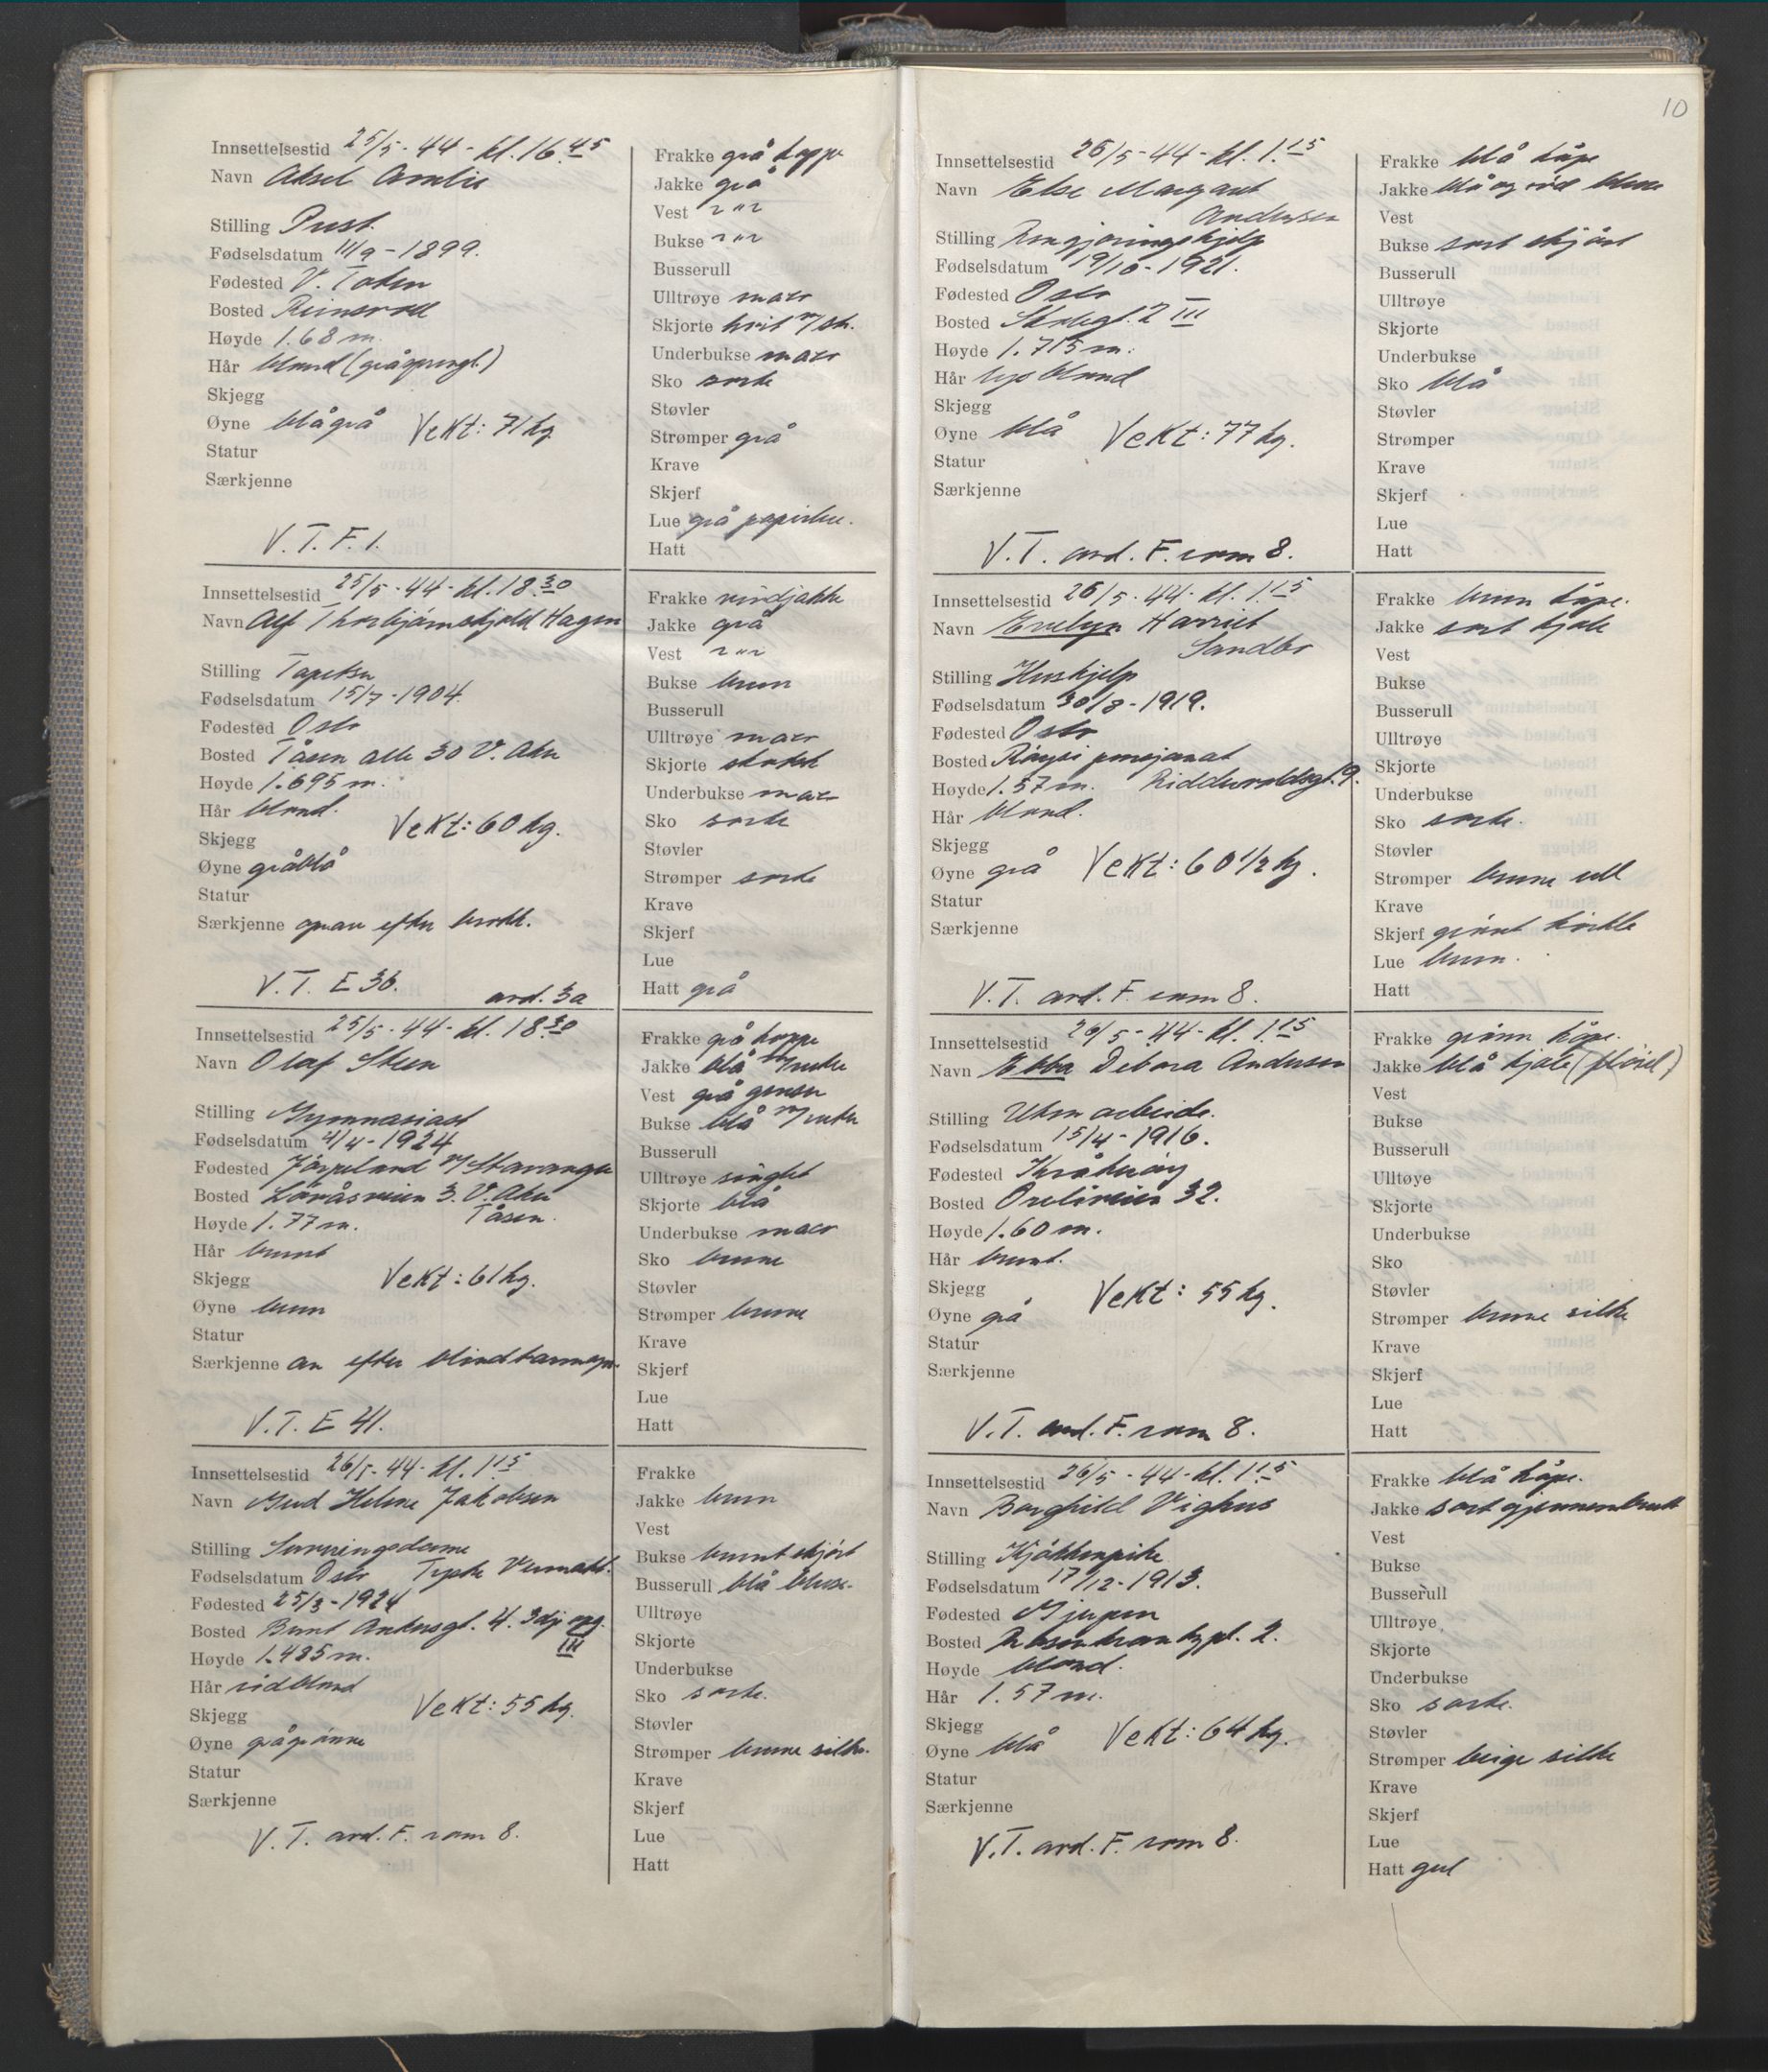 10
Innsettelsestid 25/5 - 44 - kl. 16.45
Navn Aksel Amlie
Stilling Prest.
Fødselsdatum 11/9 - 1899.
Fødested V. Toten
Bosted Reinsvoll
Høyde 1.68 m.
Hår blond (gråsprengt)
Skjegg
Øyne blågrå Vekt: 71 kg
Statur
Særkjenne
V. T. F. 1.
Frakke grå kappe
Jakke grå
Vest
Bukse
Busserull
Ulltrøye maco
Skjorte hvit m/ str.
Underbukse maco
Sko sorte
Støvler
Strømper grå
Krave
Skjerf
Lue grå papirlue.
Hatt
Innsettelsestid 25/5 - 44 - kl. 18.30
Navn Alf Thorbjørnskjold Hagen
Stilling Tapetser
Fødselsdatum 15/7 - 1904.
Fødested Oslo
Bosted Tåsen alle 30 V. Aker
Høyde 1.695 m.
Hår blond.
Skjegg Vekt: 60 kg.
Øyne gråblå
Statur
Særkjenne efter brokk.
V. T. E 36.
Frakke vindjakke
Jakke grå
Vest
Bukse brun
Busserull
Ulltrøye maco
Skjorte
Underbukse maco
Sko sorte
Støvler
Strømper sorte
Krave
Skjerf
Lue
Hatt grå
avd. 3a
Innsettelsestid 25/5 - 44 - kl. 18.30
Navn Olaf Steen
Stilling Gymnasiast
Fødselsdatum 4/4 - 1924
Fødested Jørpeland v/ Stavanger
Bosted Løvåsveien 3. V. Aker
Tåsen.
Høyde 1.77 m.
Hår brunt
Skjegg Vekt: 61 kg.
Øyne brun
Statur
Særkjenne arr efter blindtarmopr.
V. T. E 41.
Frakke grå kappe
Jakke blå m/ruter
Vest grå genser
Bukse blå m/ruter
Busserull
Ulltrøye singlet
Skjorte blå
Underbukse maco
Sko brune
Støvler
Strømper brune
Krave
Skjerf
Lue
Hatt
Innsettelsestid 26/5 - 44 - kl. 1.15
Navn Gud Helene Jakobsen
Stilling Serveringsdame
Fødselsdatum Oslo Tyske Vermakt.
Fødested 25/3 - 1924
Bosted Bernt Ankersgt. 4. 3dje opg.
III
Høyde 1.485 m.
Hår rødblond
Skjegg Vekt: 55 kg.
Øyne grågrønne
Statur
Særkjenne
V. T. avd. F. rom 8.
Frakke
Jakke brun
Vest
Bukse brunt skjørt
Busserull blå bluse.
Ulltrøye
Skjorte
Underbukse
Sko sorte.
Støvler
Strømper brune silke.
Krave
Skjerf
Lue
Hatt
Innsettelsestid 26/5 - 44 - kl. 1.15
Navn Else Margaret
Andersen
Stilling Rengjøringshjelp
Fødselsdatum 19/10 - 1921.
Fødested Oslo
Bosted 2 III
Høyde 1.715 m.
Hår lysblond
Skjegg
Øyne blå Vekt: 77 kg.
Statur
Særkjenne
V. T. avd. F. rom 8.
Frakke blå kåpe
Jakke blå og rød bluse
Vest
Bukse sort skjørt
Busserull
Ulltrøye
Skjorte
Underbukse
Sko blå
Støvler
Strømper
Krave
Skjerf
Lue
Hatt
Innsettelsestid 26/5 - 44 - kl. 1.15
Navn Evelyn Harriet
Sandbo
Stilling Hushjelp
Fødselsdatum 30/8 - 1919.
Fødested Oslo
Bosted pensjonat
Høyde 1.57 m. Riddervoldsgt. 9.
Hår blond.
Skjegg
Øyne grå Vekt: 60 1/2 kg.
Statur
Særkjenne
V. T. avd. F. rom 8.
Frakke brun kåpe.
Jakke sort kjole
Vest
Bukse
Busserull
Ulltrøye
Skjorte
Underbukse
Sko sorte.
Støvler
Strømper brune ull
Krave
Skjerf grønt tørkle
Lue brun.
Hatt
Innsettelsestid 26/5 - 44 - kl. 1.15
Navn Ebba Debora Andersen
Stilling Uten arbeide.
Fødselsdatum 15/4 - 1916.
Fødested Kråkerøy
Bosted 32.
Høyde 1.60 m.
Hår brunt.
Skjegg
Øyne grå Vekt: 55 kg.
Statur
Særkjenne
V. T. avd. F. rom 8.
Frakke grønn kåpe.
Jakke blå kjole (fløiel)
Vest
Bukse
Busserull
Ulltøye
Skjorte
Underbukse
Sko
Støvler
Strømper brune silke
Krave
Skjerf
Lue
Hatt
Innsettelsestid 26/5 - 44 - kl. 1.15
Navn Borghild Vighus
Stilling Kjøkkenpike
Fødselsdatum 17/12 - 1913.
Fødested Gjerpen
Bosted Rosenkrantzgt. 2.
Høyde blond.
Hår 1.57 m.
Skjegg
Øyne blå Vekt: 64 kg.
Statur
Særkjenne
V. T. avd. F. rom 8.
Frakke blå kåpe.
Jakke sort gjennembrutt
Vest
Bukse
Busserull
Ulltrøye
Skjorte
Underbukse
Sko sorte.
Støvler
Strømper beige silke
Krave
Skjerf
Lue
Hatt gul